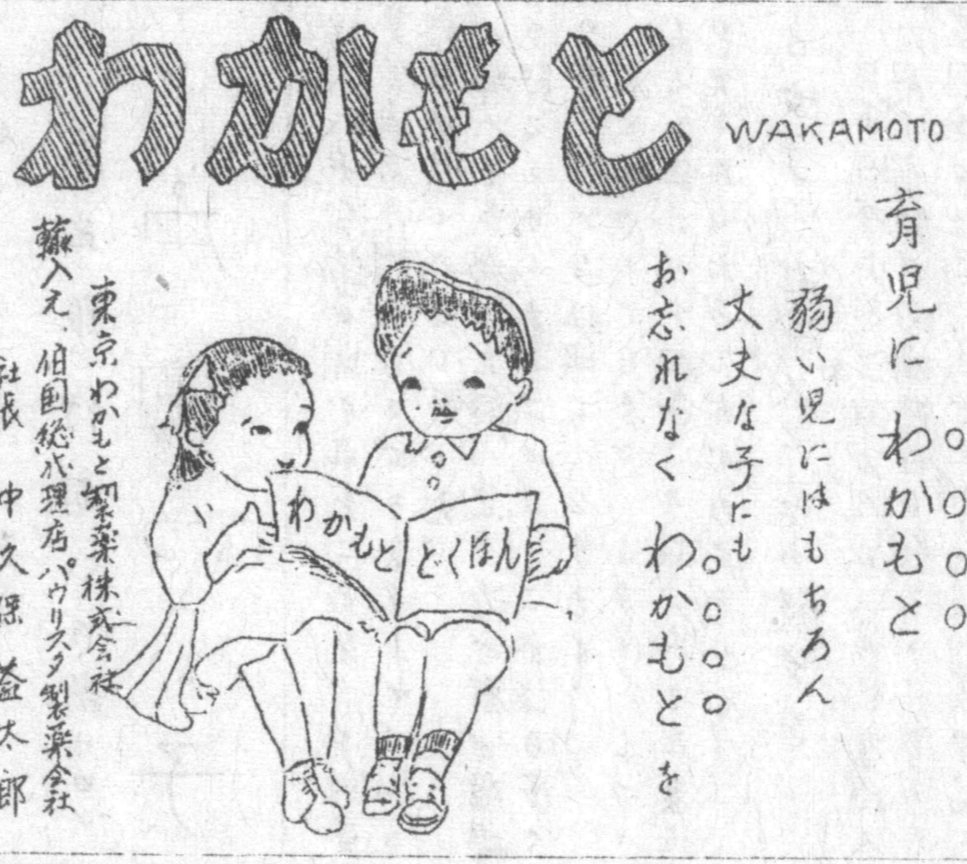 わかもと
WAKAMOTO
育児に わかもと
弱い児にはもちろん
丈夫な子にも
お忘れなく わかもとを
わかもと
どくほん
東京わかもと製薬株式会社
輸入元・伯国総代理店パウリスタ製薬会社
社長 中久保益太郎